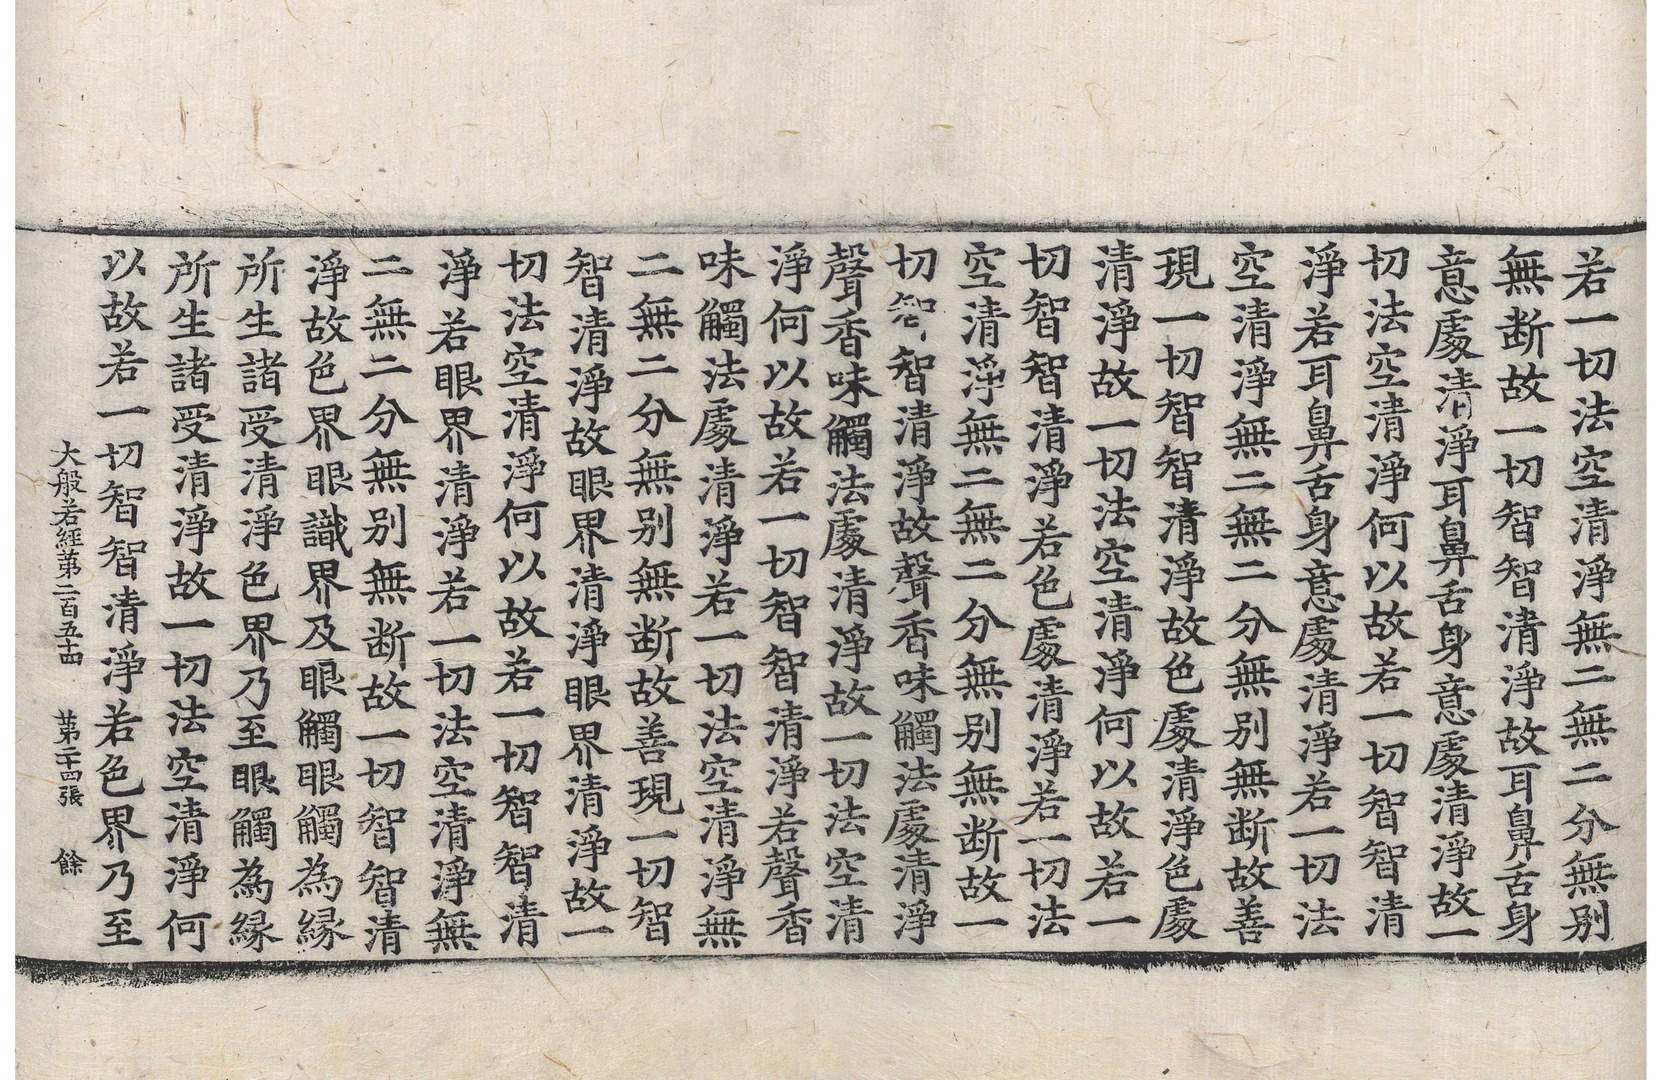 若一切法空清淨無二無二分無别
無断故一切智智清淨故耳鼻舌身
意處清淨耳鼻舌身意處清淨故一
切法空清淨何以故若一切智智清
淨若耳鼻舌身意處清淨若一切法
空清淨無二無二分無别無断故善
現一切智智清淨故色處清淨色處
清淨故一切法空清淨何以故若一
切智智清淨若色處清淨若一切法
空清淨無二無二分無别無断故一
切智智清淨故聲香味觸法處清淨
聲香味觸法處清淨故一切法空清
淨何以故若一切智智清淨若聲香
味觸法處清淨若一切法空清淨無
二無二分無别無断故善現一切智
智清淨故眼界清淨眼界清淨故一
切法空清淨何以故若一切智智清
淨若眼界清淨若一切法空清淨無
二無二分無别無断故一切智智清
淨故色界眼識界及眼觸眼觸為縁
所生諸受清淨色界乃至眼觸為縁
所生諸受清淨故一切法空清淨何
以故若一切智智清淨若色界乃至
大般若經苐二百五十四 苐二十四張 餘